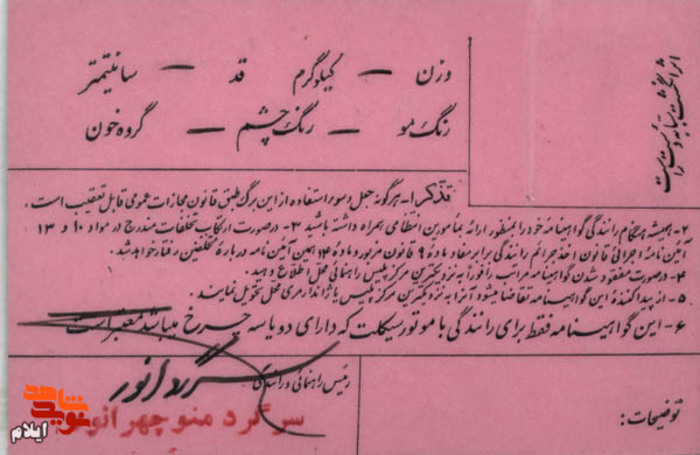 وزن — کیلوگرم قد — سانتیمتر
رنگ مو — رنگ چشم — گروه خون
اثر انگشت سبابه دست راست
تذکر ۱- هرگونه جعل و سوء استفاده از این برگ طبق قانون مجازات عمومی قابل تعقیب است.
۲- همیشه هنگام رانندگی گواهینامه خود را بمنظور ارائه بمأمورین انتظامی همراه داشته باشید ۳- در صورت ارتکاب تخلفات مندرج در مواد ۱۰ و ۱۳
آئین نامه اجرائی قانون اخذ جرائم رانندگی برابر مفاد ماده ۹ قانون مزبور و ماده ۱۴ همین آئین نامه درباره متخلفین رفتار خواهد شد.
۴- در صورت مفقود شدن گواهینامه مراتب را فوراً به نزدیکترین مرکز پلیس راهنمائی محل اطلاع دهید.
۵- از پیدا کننده این گواهینامه تقاضا میشود آنرا به نزدیکترین مرکز پلیس یا ژاندارمری محل تحویل نمایند.
۶- این گواهینامه فقط برای رانندگی با موتورسیکلت که دارای دو یا سه چرخ میباشد معتبر است
رئیس راهنمائی و رانندگی
سرگرد انور
سرگرد منوچهر انور
توضیحات:
نوید شاهد
ایلام